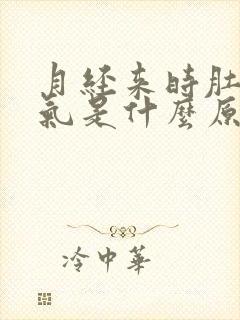 月經來時肚
氣是什麼原
冷中華